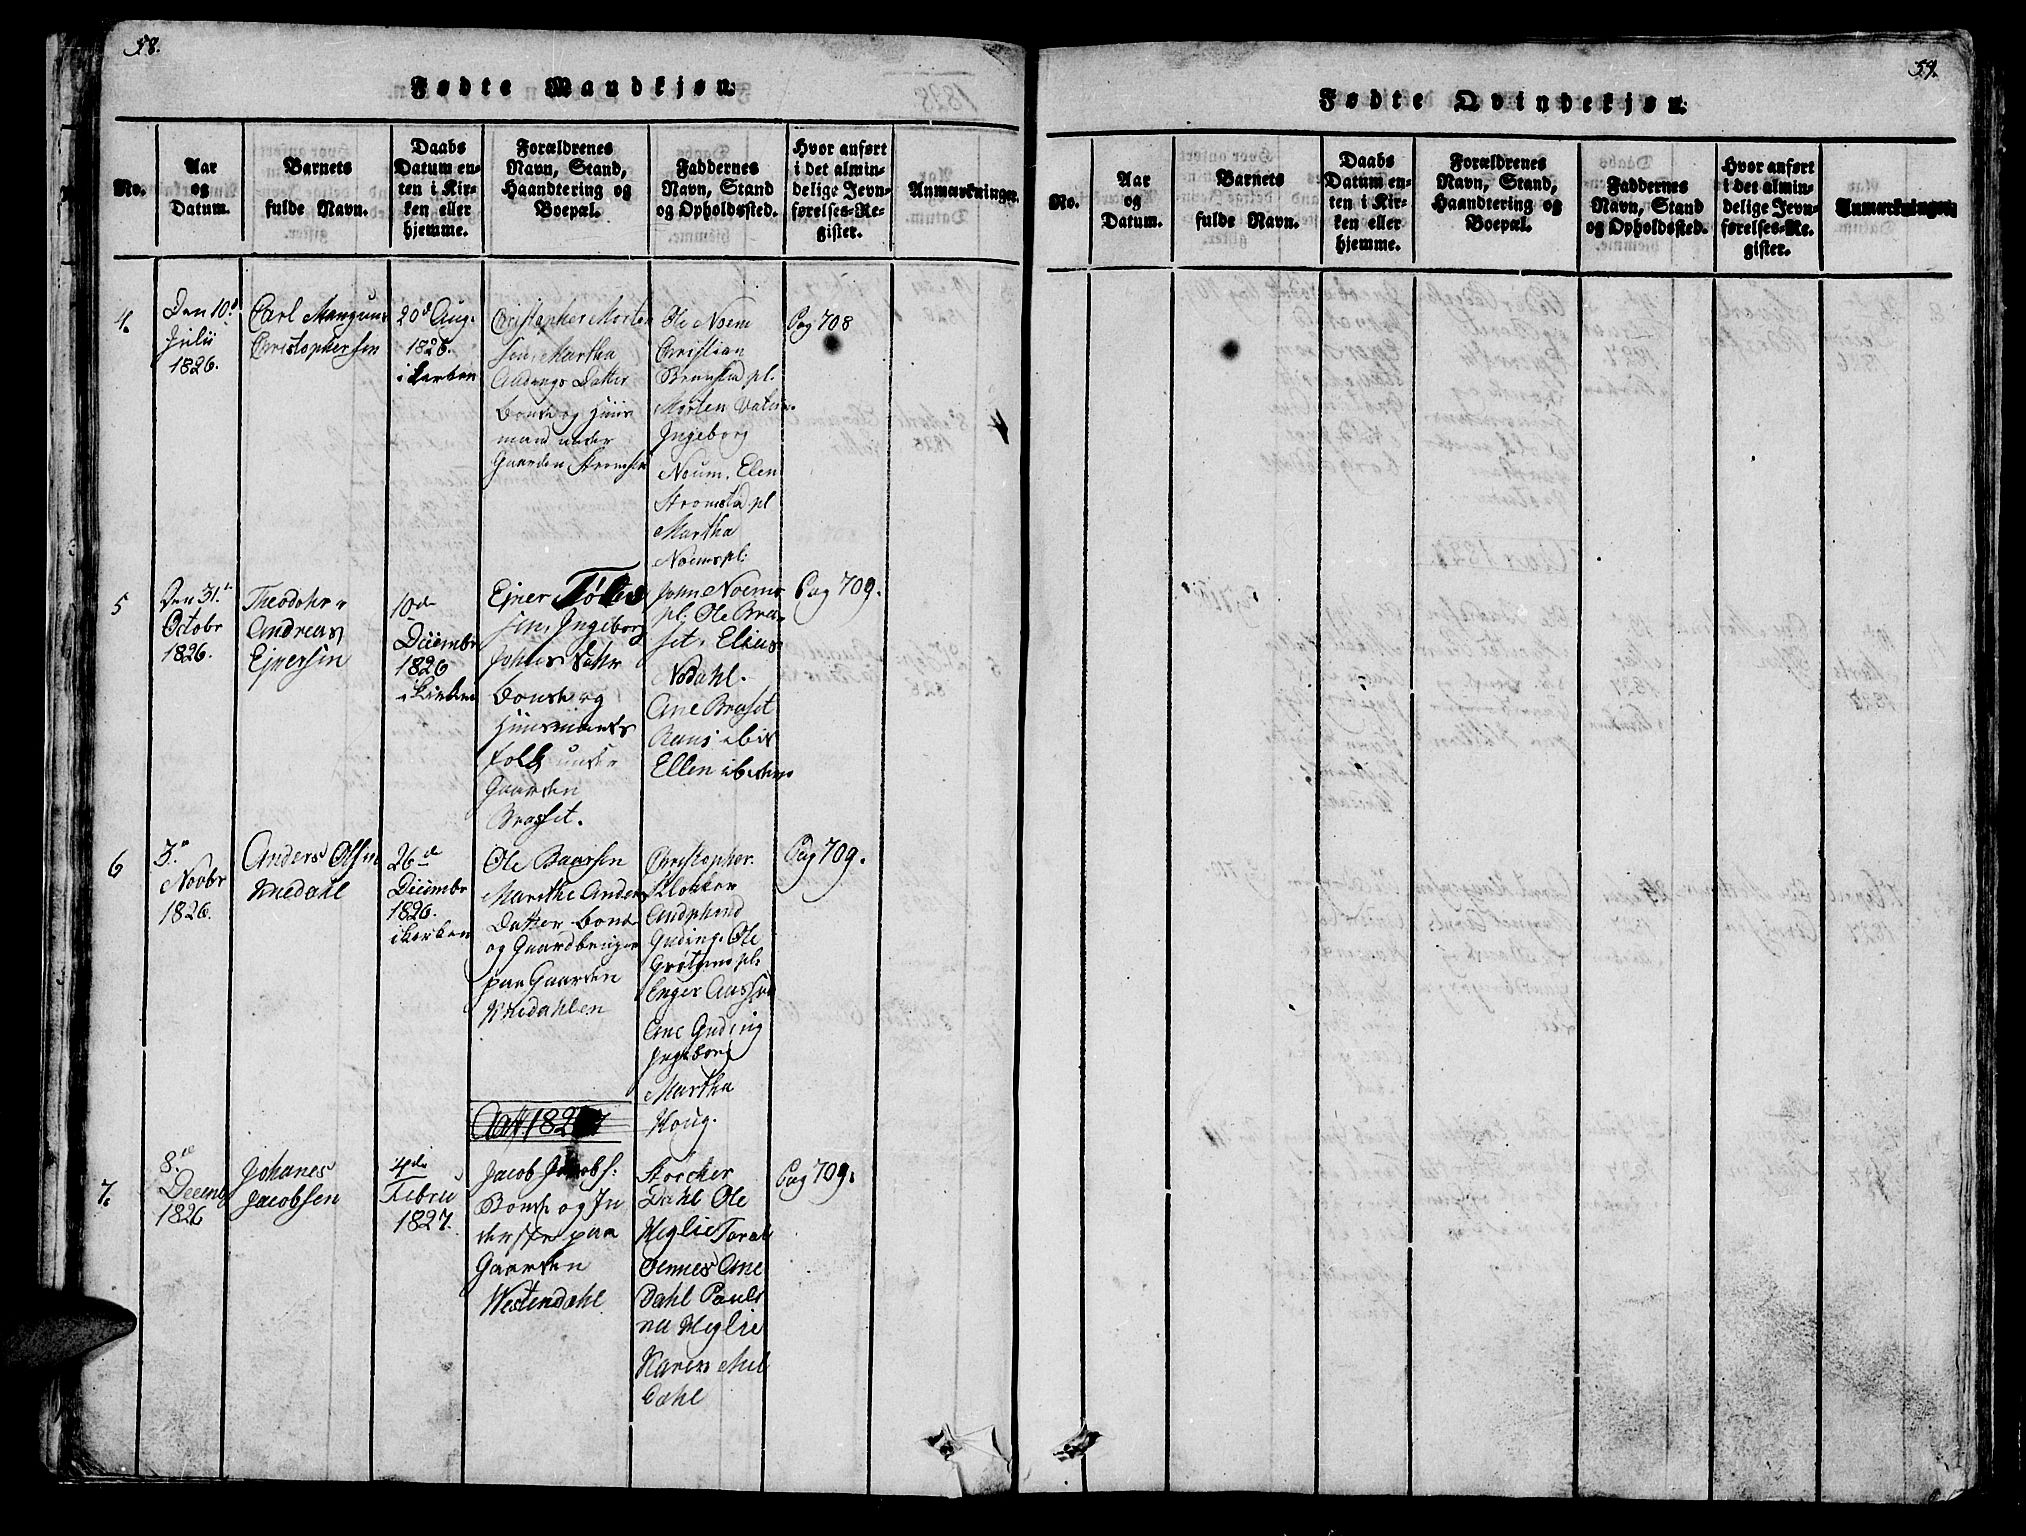 58.
Fødte Mandkjøn.
No.
Aar
og
Datum.
Barnets
fulde Navn.
Daabs
Datum en-
ten i Kir-
ken eller
hjemme.
Forældrenes
Navn, Stand,
Haandtering og
Boepæl.
Faddernes
Navn, Stand
og Opholdssted.
Hvor anført
i det almin-
delige Jevn-
førelses-Re-
gister.
Anmærkninger.
4.
Den 10d
Julii
1826.
Carl Mangnus
Christophersen
20d Aug.
1826.
i kerken
Christopher Morten
sen, Martha
Datter
Bonde og Huus
mand under
Gaarden
Ole Noem
Christian
pl.
Morten
Ingeborg
Noum. Elen
Stromstad pl
Martha
Noemspl.
Pag 708
5
Den 31.te
Octobr
1826.
Theodohr
Andreas
Ejnersen
10de
Deiembr
1826
i kirken
Ejner
sen, Ingeborg
Johns Datr
Bonde og
Huusmands
folk under
Gaarden
Brasset.
John Noems
pl. Ole Bra
set. Elias
Nodahl.
Ane Braset
ibid
Ellen ibidem
Pag 709.
6
3.te
Novbr
1826.
Anders Olsen
26de
Deiembr
1826.
i kerken
Ole Baarsen
Marethe Anders
Datter Bonde
og Gaardbruger
paa Gaarden
Christopher
Klokker
Guding. Ole
pl.
Enger
Ane Guding
Ingeborg
Martha
Houg.
Pag 709.
Aar 1827
7.
8.de
Decemb
1826
Johanes
Jacobsen
4de
Febru
1827.
Jacob Jacobs:
Bonde og In
derste paa
Gaarden
Westendahl.
Storcker
Dahl Ole
Heglie
Ane
Dahl Pauli
na Heglie
Karen Mel
Dahl
Pag 709.
59.
Fødte Qvindekjøn.
No.
Aar
og
Datum.
Barnets
fulde Navn.
Daabs
Datum en-
ten i Kir-
ken eller
hjemme.
Forældrenes
Navn, Stand,
Haandtering og
Boepæl.
Faddernes
Navn, Stand
og Opholdssted.
Hvor anført
i det almin-
delige Jevn-
førelses-Re-
gister.
Anmærkninger.